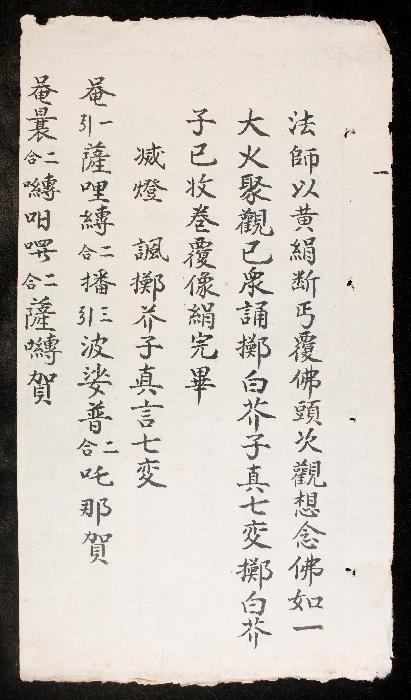 法師以黄絹断丐覆佛頭次觀想念佛如一
大火聚觀已衆誦擲白芥子真七变擲白芥
子已收卷覆像絹完畢
滅燈 諷擲芥子真言七变
菴一引薩哩縛二合播三引波娑普二合吒那賀
菴曩二合嚩吽㗁二合薩嚩賀